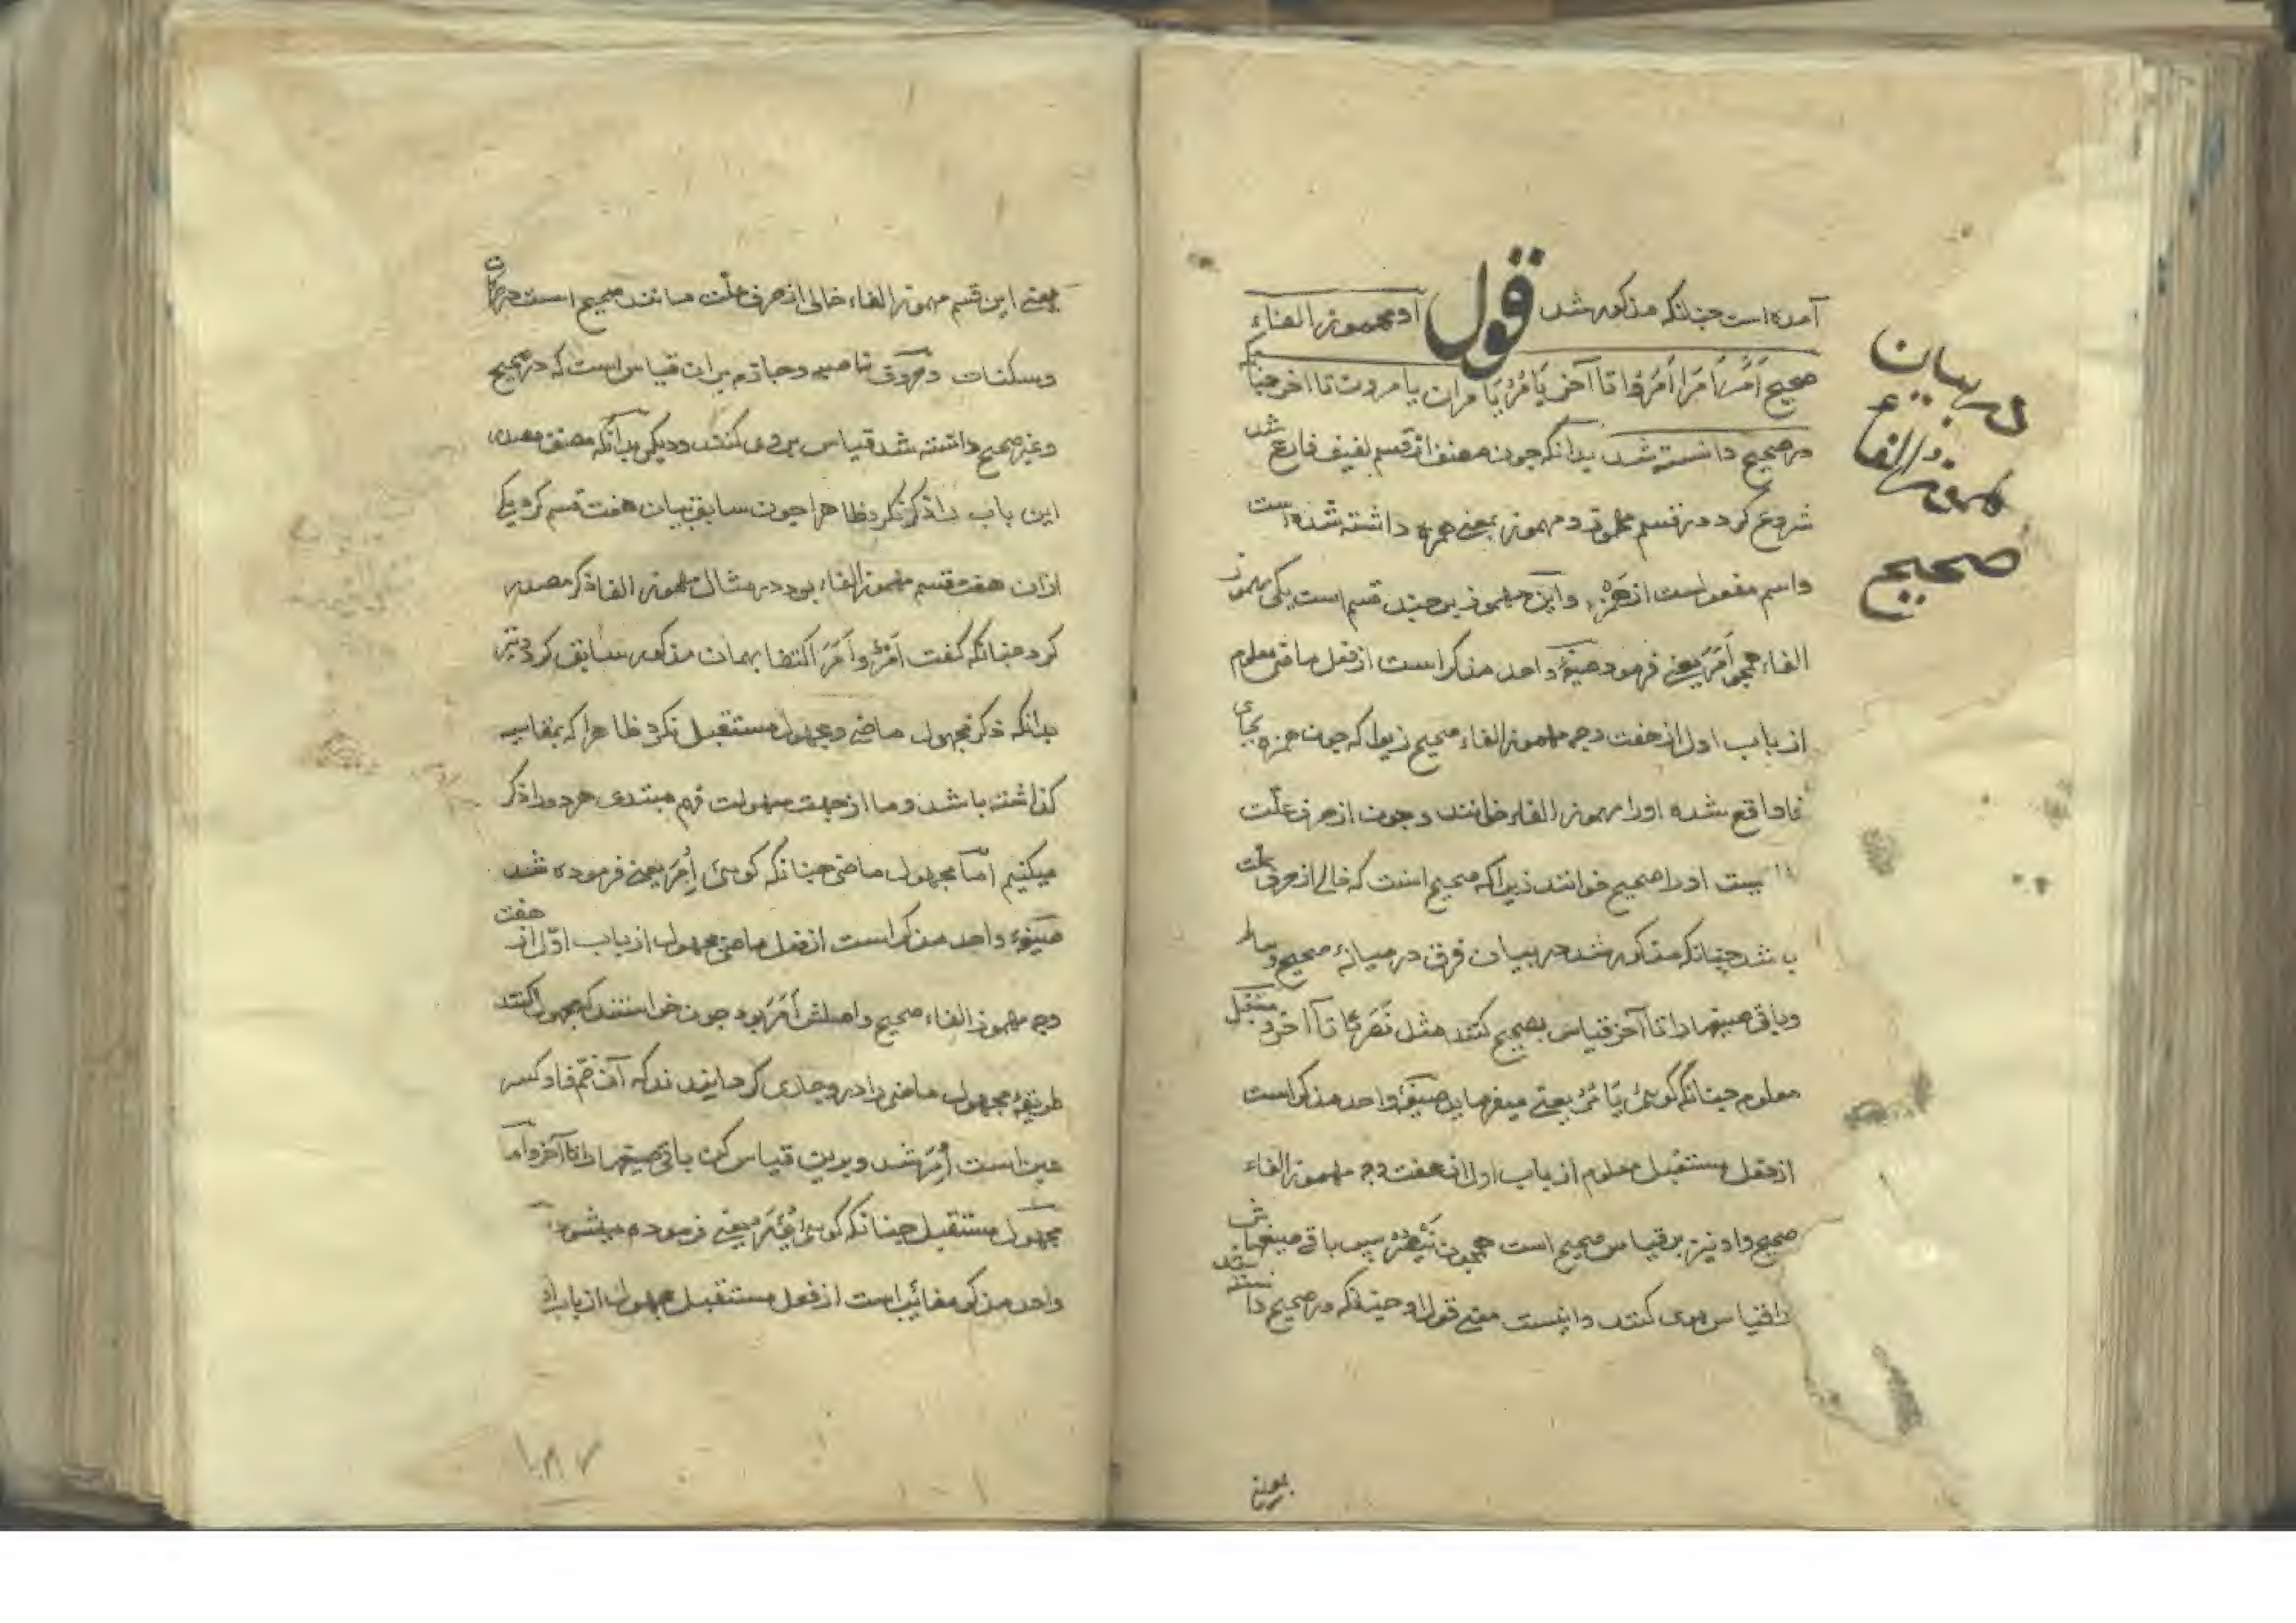 آمده است چنانکه مذکور شد قول او مهموز الفاء
صحیح اَمَرَ اَمَرَا اَمَرُوا تا آخر یَامُرُ یَامران یامرون تا اخر چنانکه
در صحیح دانسته شد بدانکه چون مصنف از قسم لفیف فارغ شد
شروع کرد در قسم و مهموز بمعنی همزه داشته شده است
واسم مفعول است از همزه واین مهموز بر چند قسم است یکی مهموز
الفاء همچو اَمَرَ یعنی فرمود صیغۀ واحد مذکر است از فعل ماضی معلوم
از باب اول از هفت وجه مهموز الفاء صحیح زیرا که چون همزه بجای
فا واقع شده اورا مهموز الفاء خوانند و چون از حرف علّت
نیست اورا صحیح خوانند زیرا که صحیح انست که خالی از حرف علت
باشد چنانکه مذکور شد در بیان فرق در میانۀ صحیح و سالم
وباقی صیغها را تا آخر قیاس بصحیح کنند مثل نَصَرَ تا آخر و مستقبل
معلوم چنانکه گوئی یَامُرُ یعنی میفرماید صیغۀ واحد مذکر است
از فعل مستقبل معلوم از باب اول از هفت وجه مهموز الفاء
صحیح واو نیز بر قیاس صحیح است همچون یَنْصُرُ پس باقی صیغهاش
را قیاس بوی کنند واینست معنی قول او چنانکه در صحیح دانسته شد
یعنی
در بیان
مهموز الفاء
صحیح
یعنی این قسم مهموز الفاء خالی از حرف علّت مانند صحیح است در حرکات
وسکنات وحروف ناصبه وجازم بران قیاس است که در صحیح
وغیر صحیح داشته شد قیاس بروی کنند ودیگر بدآنکه مصنف مصدر
این باب را ذکر نکرد ظاهرا چون سابق بیان هفت قسم کرد یکی
ازان هفت قسم مهموز الفاء بود در مثال مهموز الفا ذکر مصدر
کرد چنانکه گفت اَمْرٌ و اَمَرَ اکتفا بهمان مذکور سابق کرد ونیز
بدانکه ذکر مجهول ماضی ومجهول مستقبل نکرد ظاهرا که بمقایسه
گذاشته باشد وما از جهت سهولت فهم مبتدی هر دو را ذکر
میکنیم امّا مجهول ماضی چنانکه گوئی اُمِرَ یعنی فرموده شد
صیغۀ واحد مذکر است از فعل ماضی مجهول از باب اوّل از هفت
وجه مهموز الفاء صحیح واصلش اَمَرَ بود چون خواستند که مجهول کنند
طریقۀ مجهول ماضی را درو جاری گردانیدند که آن ضم فا وکسر
عین است اُمِرَ شد وبرین قیاس کن باقی صیغها را تا آخر وامّا
مجهول مستقبل چنانکه گوئی یُؤمَرُ یعنی فرموده میشود
واحد مذکر مغائب است از فعل مستقبل مجهول از باب او